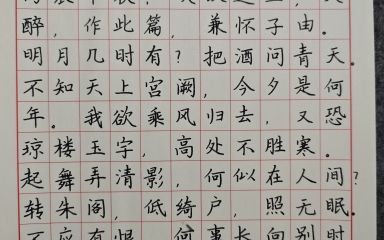 醉，作此篇，兼怀子由。
明月几时有？把酒问青天。
不知天上宫阙，今夕是何
年。我欲乘风归去，又恐
琼楼玉宇，高处不胜寒。
起舞弄清影，何似在人间？
转朱阁，低绮户，照无眠。
不应有恨，何事长向别时